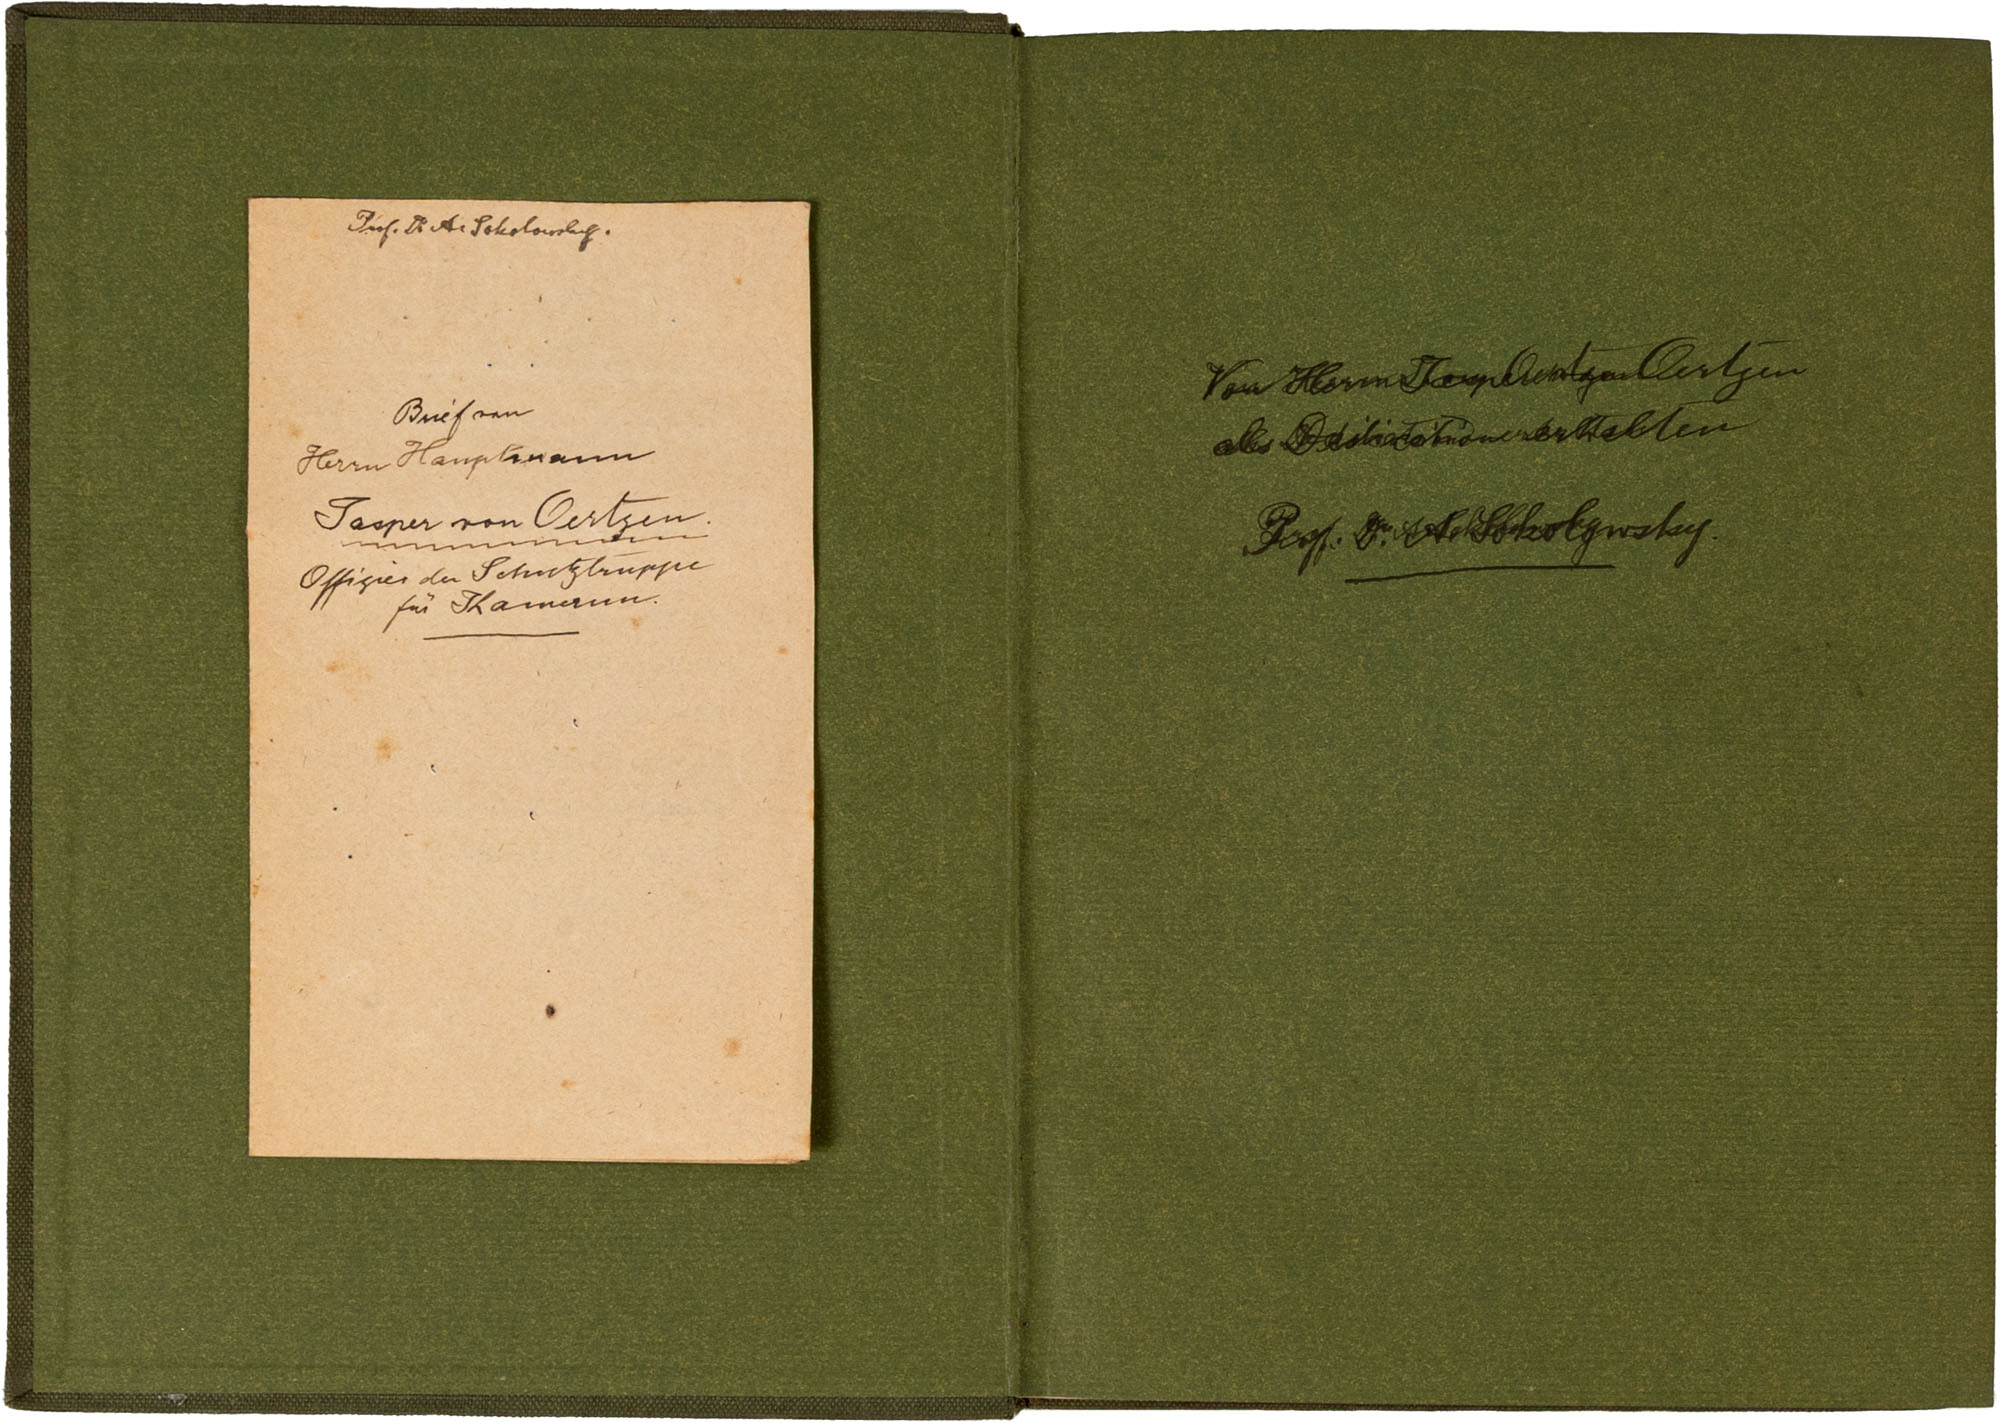 Prof. Dr. A. Sokolowsky.
Brief von
Herrn Hauptmann
Jasper von Oertzen.
Offizier der Schutztruppe
für Kamerun.
Von Herrn Jasper Oertzen
als Dedikation erhalten
Prof. Dr. A. Sokolowsky.